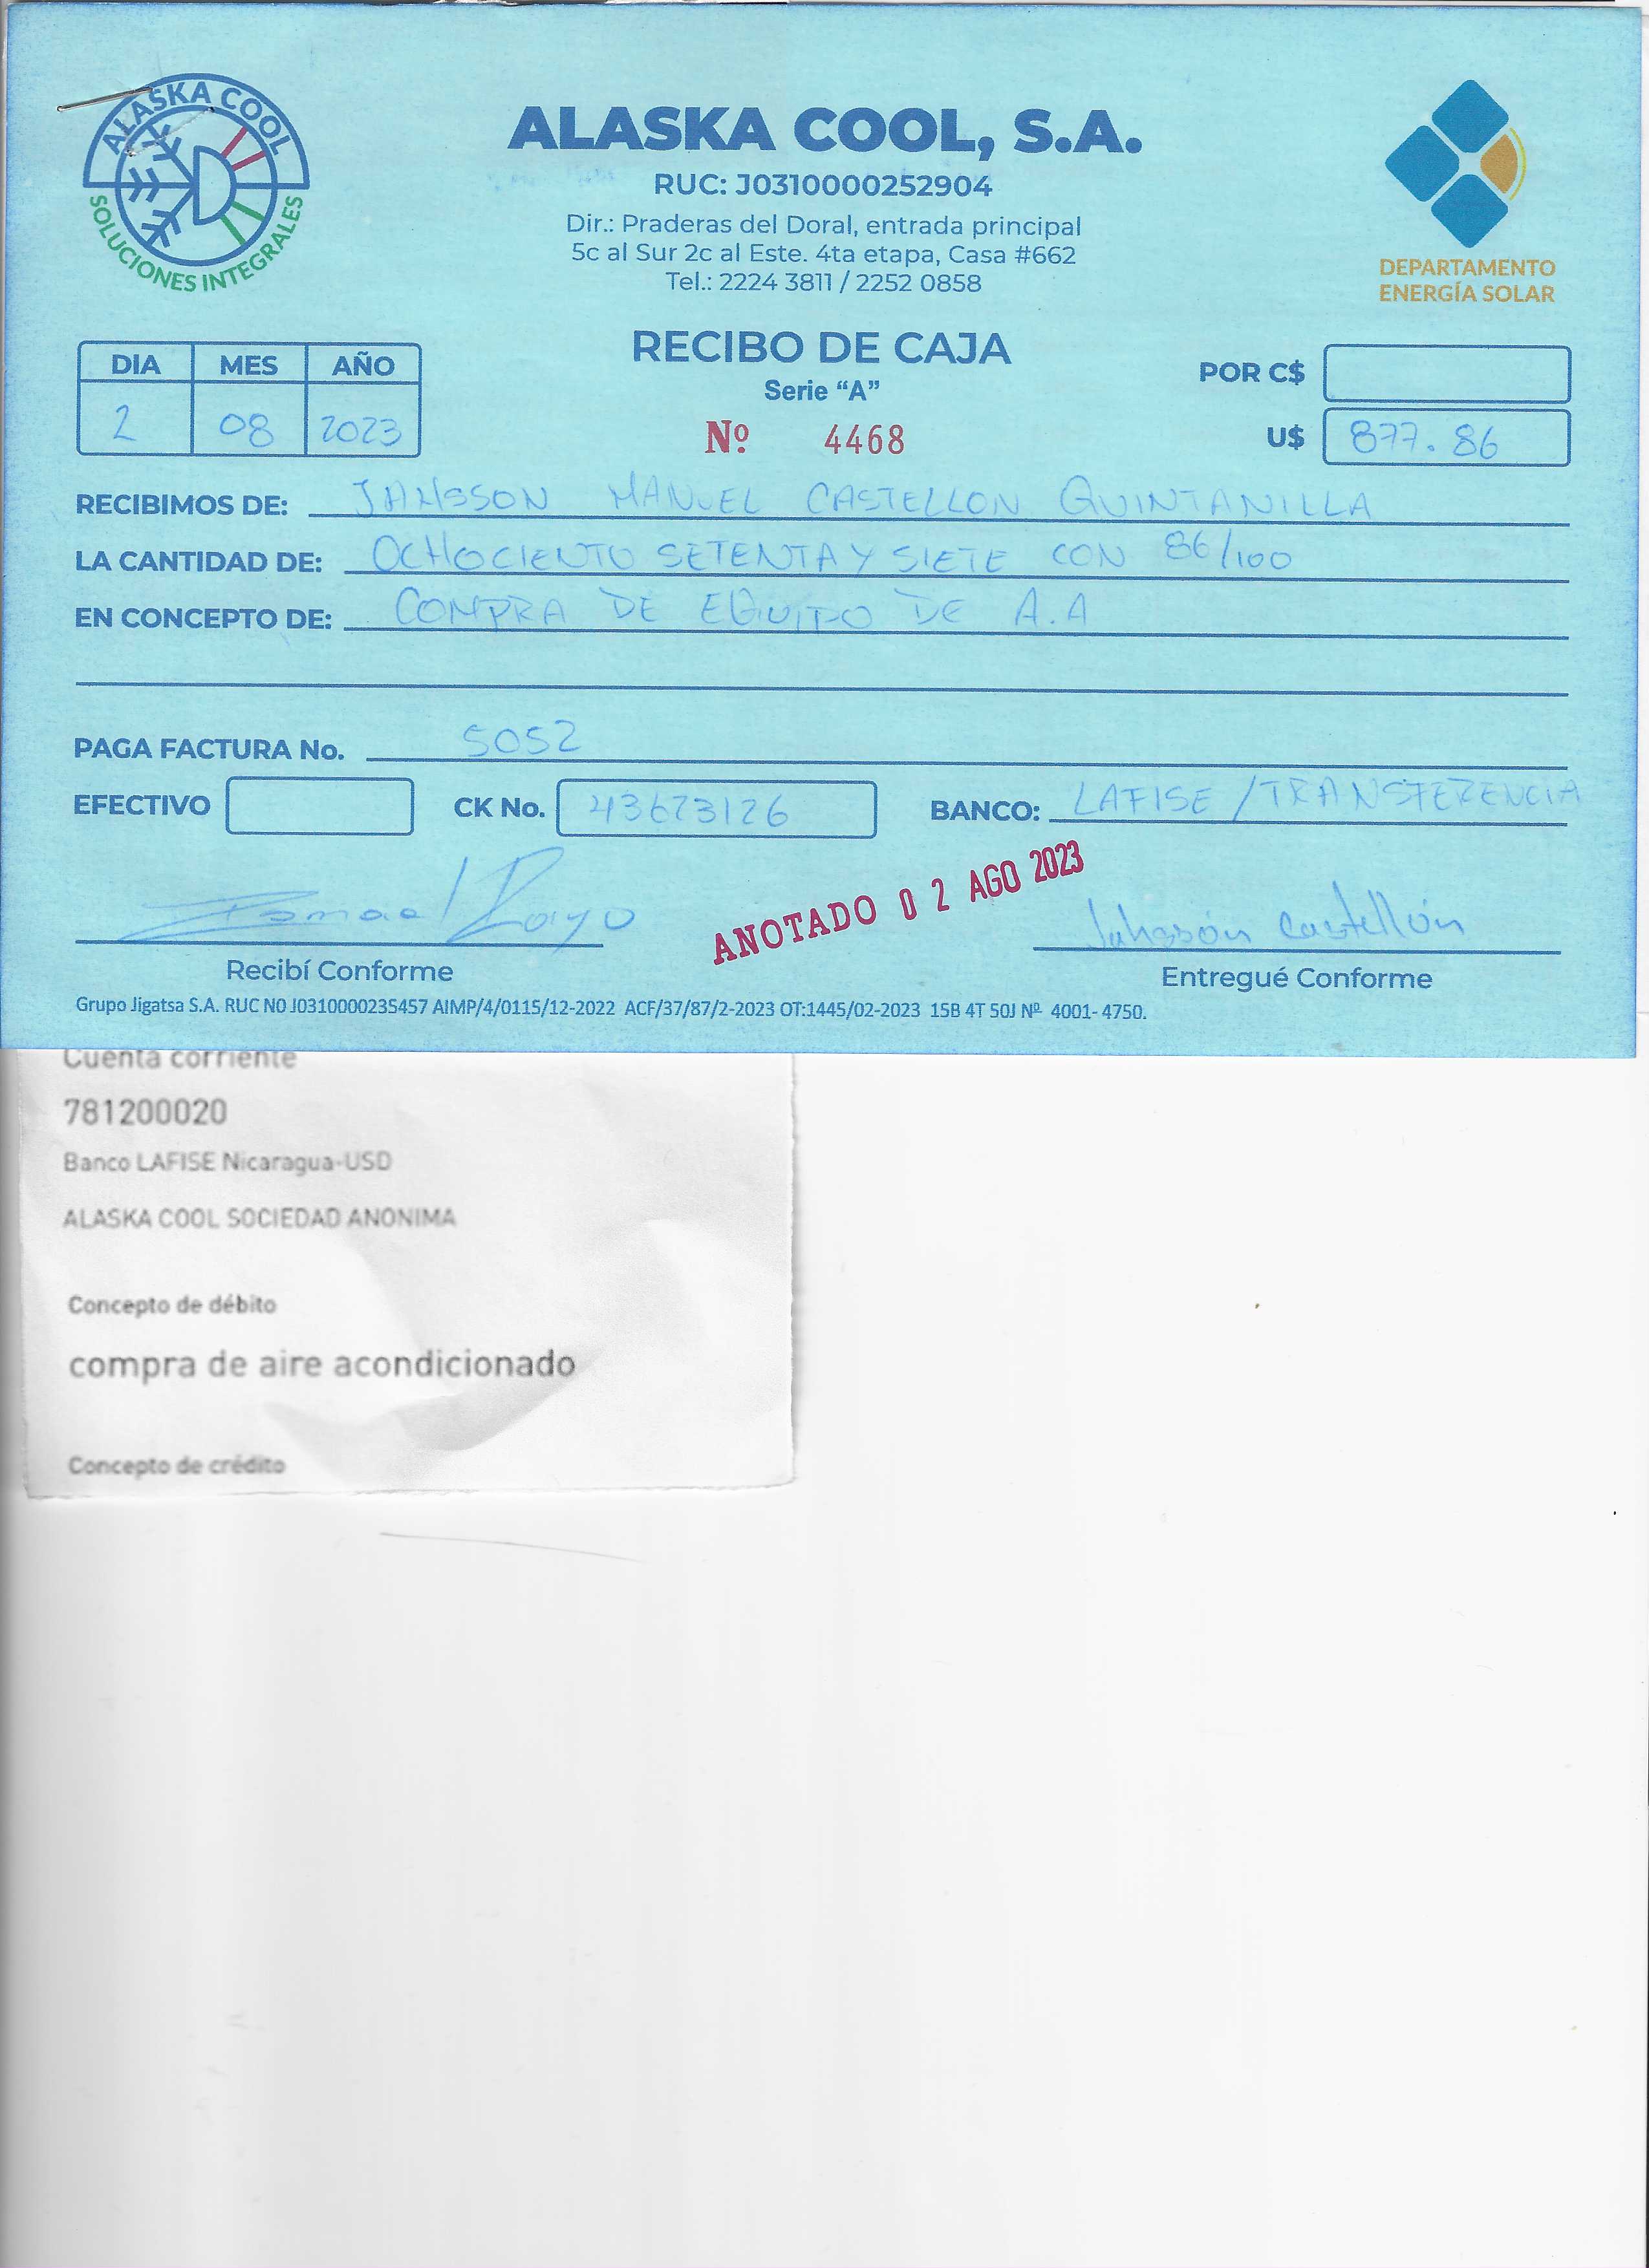 ALASKA COOL
SOLUCIONES INTEGRALES
ALASKA COOL, S.A.
RUC: J0310000252904
Dir.: Praderas del Doral, entrada principal
5c al Sur 2c al Este. 4ta etapa, Casa #662
Tel.: 2224 3811 / 2252 0858
DEPARTAMENTO
ENERGÍA SOLAR
RECIBO DE CAJA
Serie “A”
Nº 4468
DIA MES AÑO
2 08 2023
POR C$
U$ 877.86
RECIBIMOS DE: JAHSSON MANUEL CASTELLON QUINTANILLA
LA CANTIDAD DE: OCHOCIENTO SETENTA Y SIETE CON 86/100
EN CONCEPTO DE: COMPRA DE EQUIPO DE A.A
PAGA FACTURA No. 5052
EFECTIVO CK No. 43673126 BANCO: LAFISE / TRANSFERENCIA
ANOTADO 02 AGO 2023
Ismael Rayo Castellón
Recibí Conforme Entregué Conforme
Grupo Jigatsa S.A. RUC N0 J0310000235457 AIMP/4/0115/12-2022 ACF/37/87/2-2023 OT:1445/02-2023 15B 4T 50J Nº 4001- 4750.
Cuenta corriente
781200020
Banco LAFISE Nicaragua-USD
ALASKA COOL SOCIEDAD ANONIMA
Concepto de débito
compra de aire acondicionado
Concepto de crédito